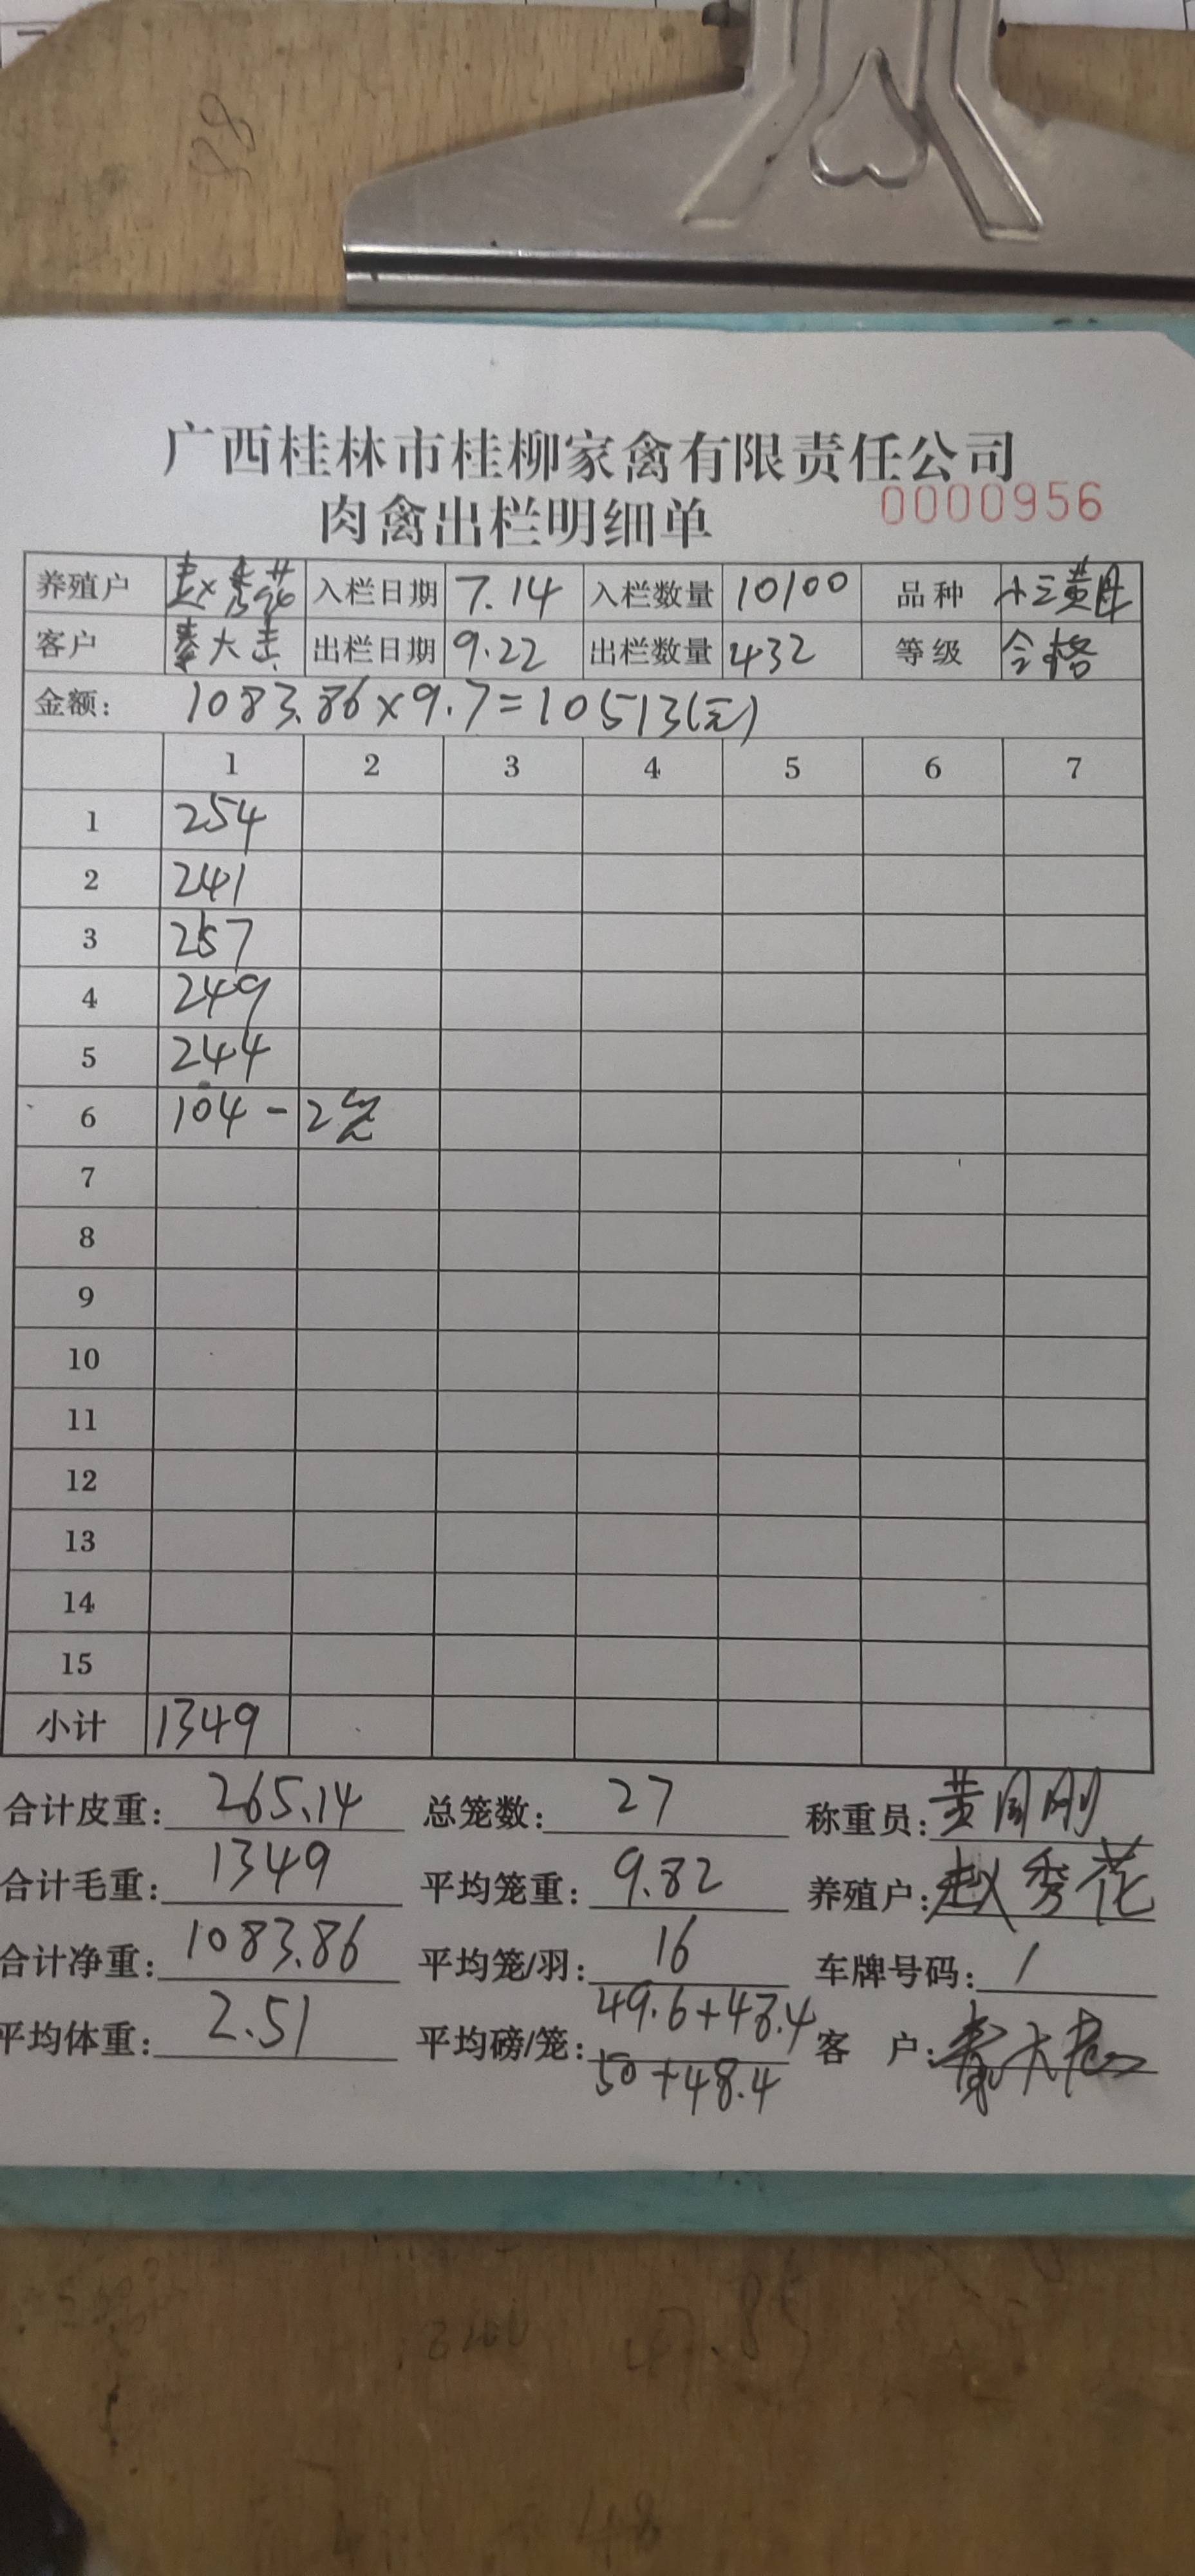 广西桂林市桂柳家禽有限责任公司
肉禽出栏明细单 0000956
养殖户 赵秀花 入栏日期 7.14 入栏数量 10100 品种 小三黄
客户 秦大 出栏日期 9.22 出栏数量 432 等级 合格
金额: 1083.86×9.7=10513(元)
1 2 3 4 5 6 7
1 254
2 241
3 257
4 249
5 244
6 104-2笼
7
8
9
10
11
12
13
14
15
小计 1349
合计皮重: 265.14 总笼数: 27 称重员: 黄国刚
合计毛重: 1349 平均笼重: 9.82 养殖户: 赵秀花
合计净重: 1083.86 平均笼/羽: 16 车牌号码: /
平均体重: 2.51 平均磅/笼: 49.6+48.4 客 户: 秦大
50+48.4